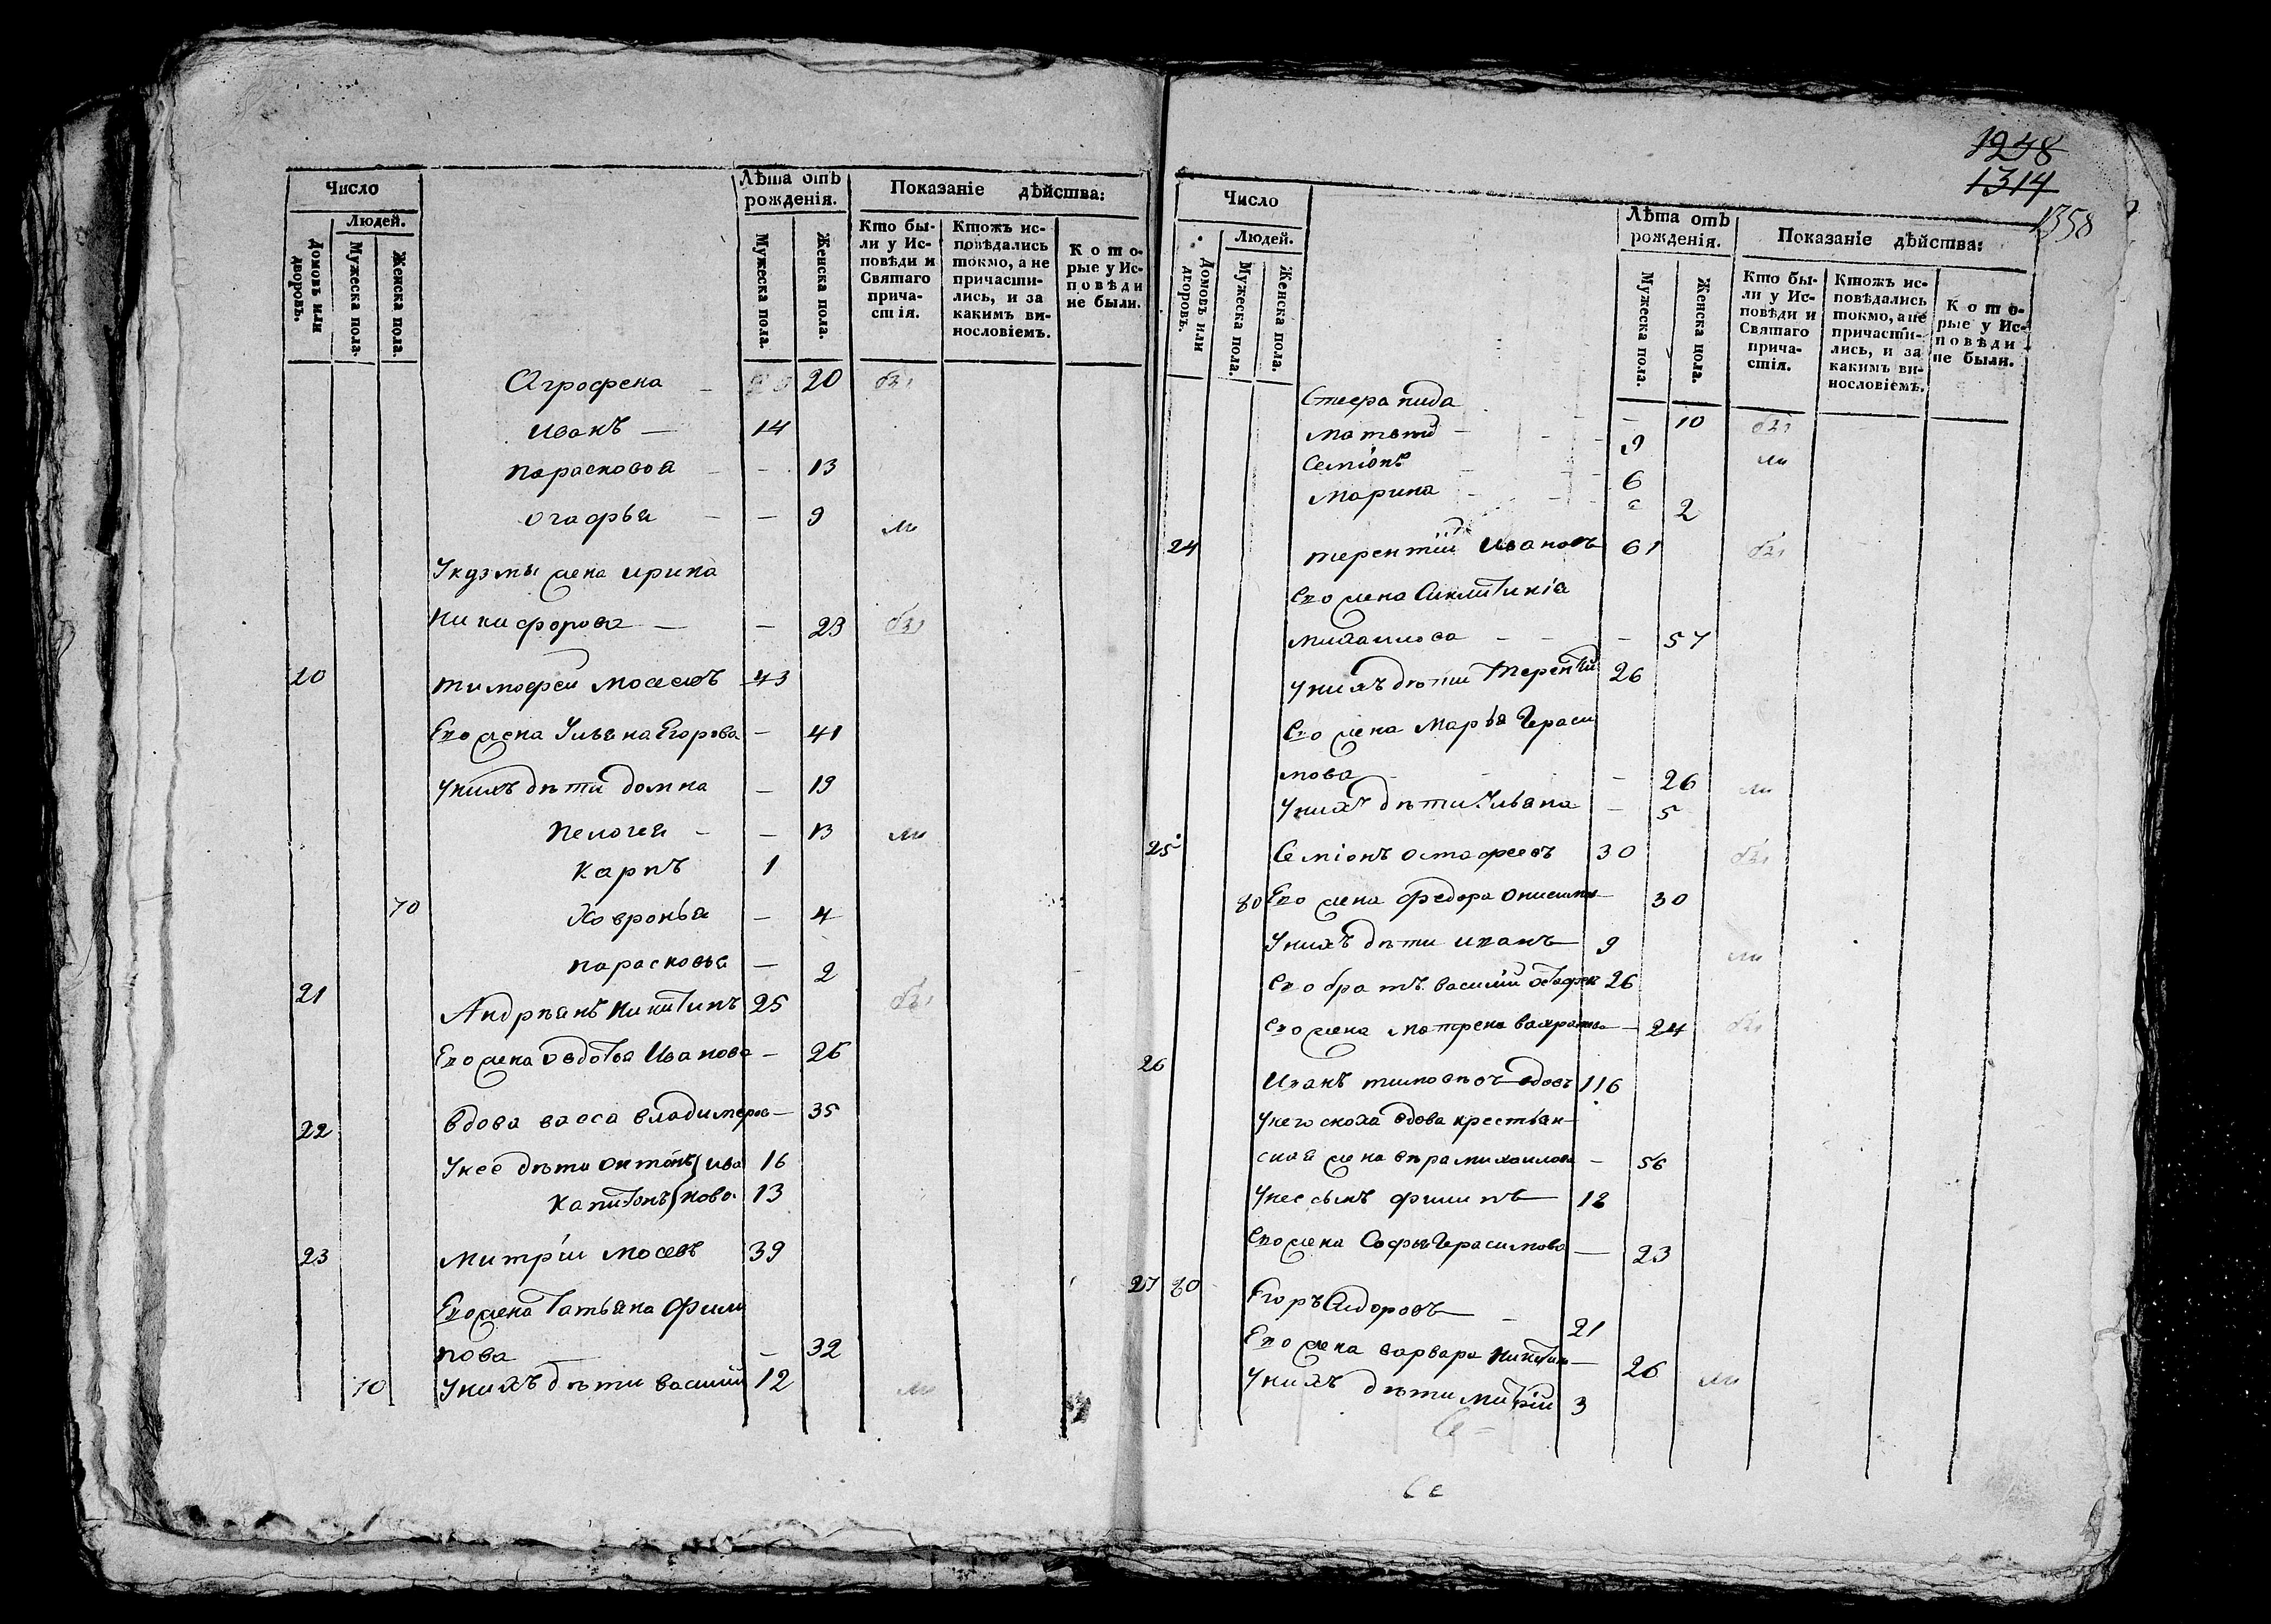 Число
Людей.
Домовъ или дворовъ.
Мужеска пола.
Женска пола.
Лѣта отъ рожденія.
Мужеска пола.
Женска пола.
Показаніе дѣйства:
Кто бы-
ли у Ис-
повѣди и
Святаго
прича-
стія.
Ктожъ ис-
повѣдались
токмо, а не
причасти-
лись, и за
какимъ ви-
нословіемъ.
Кото-
рые у Ис-
повѣди
не были.
Агрофена 20 бы
Иванъ 14
Парасковья 13
Огафья 9 ли
У кузмы жена Ирина
Никифорова 23 бы
20 Тимофеи Мосеевъ 43
Ево жена Ульяна Егорова 41
У нихъ дѣти домна 19
Пелогея 13 ли
Карпъ 1
70 Ховронья 4
Парасковья 2
21 Андреянъ Никитинъ 25 бы
Ево жена Овдотья Иванова 26
22 Вдова васса владимеров 35
У нее дѣти Онтонъ Ива 16
Капитонъ ново 13
23 Митрій Мосеевъ 39
Ево жена Татьяна Фили
пова 32
70 У нихъ дѣти Василій 12 ли
1248
1314
1358
Число
Людей.
Домовъ или дворовъ.
Мужеска пола.
Женска пола.
Лѣта отъ
рожденія.
Мужеска пола.
Женска пола.
Показаніе дѣйства:
Кто бы-
ли у Ис-
повѣди и
Святаго
прича-
стія.
Ктожъ ис-
повѣдались
токмо, а не
причасти-
лись, и за
какимъ ви-
нословіемъ.
Кото-
рые у Ис-
повѣди
не были.
Стеерапида 10 бы
Матвей 9 ли
Семіонъ 6
Марина 2
24 Терентій Ивановъ 61 бы
Ево жена Сиклитикія
Михаилова 57
У нихъ дѣти Терентій 26
Ево жена Марья Гераси
мова 26 ли
У нихъ дѣти Ульяна 5
25 Семіонъ Остафеевъ 30 бы
80 Ево жена Федора Онисимо 30
У нихъ дѣти Иванъ 9 ли
Ево братъ василій Остафее 26
Ево жена Матрена вахрамѣева 24 бы
26 Иванъ вдовъ 116
У него сноха вдова крестьян
ская жена вѣра михаилова 56
У нее сынъ филипъ 12
Ево жена Софья Герасимова 23
27 80 Егоръ Сидоровъ 21
Ево жена варвара Никитин 26 ли
У нихъ дѣти Митрій 3
Се